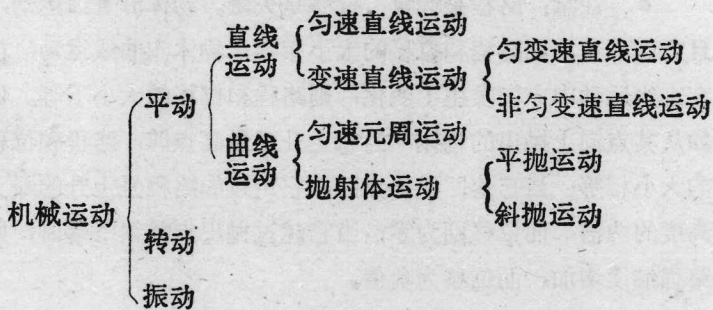 直线
运动
匀速直线运动
变速直线运动
匀变速直线运动
非匀变速直线运动
平动
曲线
运动
匀速元周运动
抛射体运动
平抛运动
斜抛运动
机械运动
转动
振动